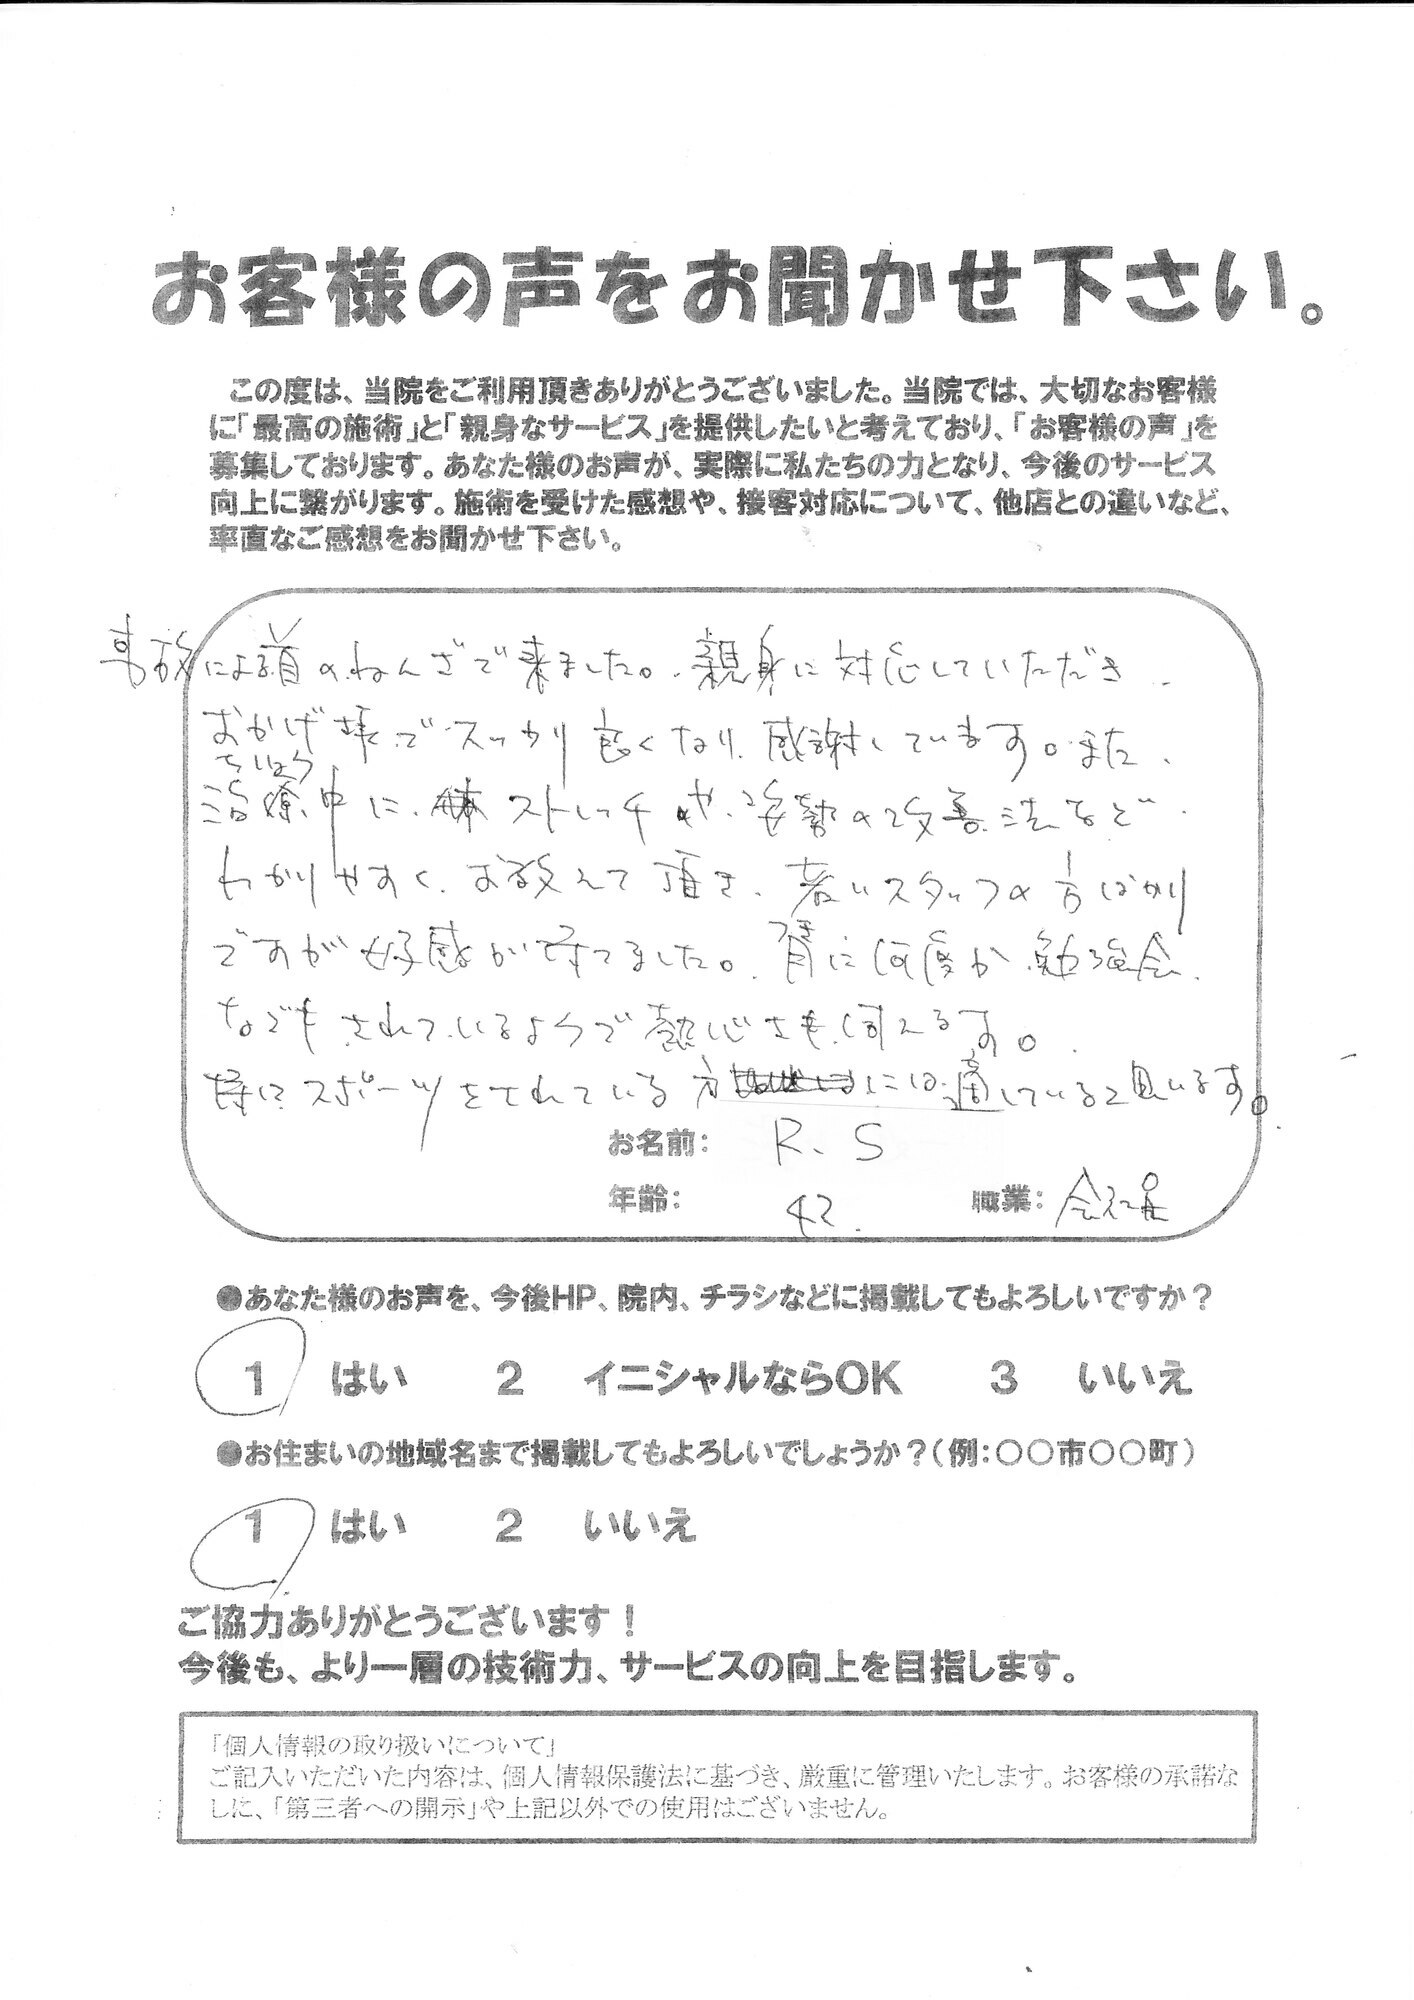 お客様の声をお聞かせ下さい。
この度は、当院をご利用頂きありがとうございました。当院では、大切なお客様
に「最高の施術」と「親身なサービス」を提供したいと考えており、「お客様の声」を
募集しております。あなた様のお声が、実際に私たちの力となり、今後のサービス
向上に繋がります。施術を受けた感想や、接客対応について、他店との違いなど、
率直なご感想をお聞かせ下さい。
事故による首のねんざで来ました。親身に対応していただき
おかげ様でスッカリ良くなり、感謝しています。また、
ちりょう
治療中に、ストレッチや、姿勢の改善法など
わかりやすく、お教えて頂き、若いスタッフの方ばかり
ですが好感が持てました。月に何度か勉強会
などもされているようで熱心さも伺えます。
特にスポーツをされている方には適していると思います。
お名前： R.S
年齢： 42. 職業： 会社員
●あなた様のお声を、今後HP、院内、チラシなどに掲載してもよろしいですか？
1 はい 2 イニシャルならOK 3 いいえ
●お住まいの地域名まで掲載してもよろしいでしょうか？（例：〇〇市〇〇町）
1 はい 2 いいえ
ご協力ありがとうございます！
今後も、より一層の技術力、サービスの向上を目指します。
「個人情報の取り扱いについて」
ご記入いただいた内容は、個人情報保護法に基づき、厳重に管理いたします。お客様の承諾な
しに、「第三者への開示」や上記以外での使用はございません。